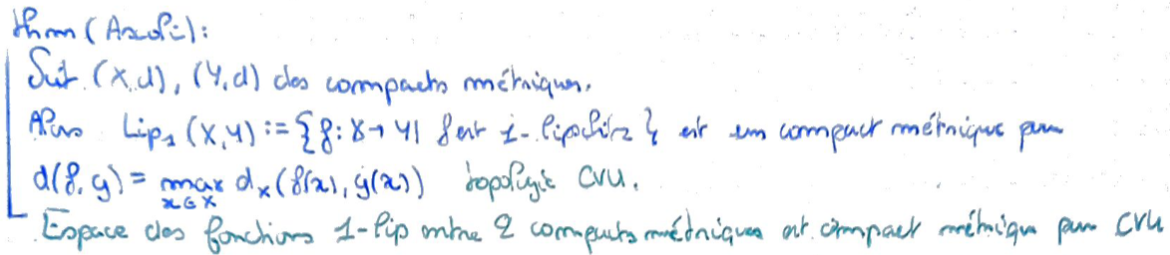 thm (Ascoli):
Soit (X,d), (Y,d) des compacts métriques.
Alors Lip₁(X,Y) := {f: X → Y | f est 1-lipschitz} est un compact métrique pour
d(f,g) = max d_X(f(x), g(x)) topologie CVU.
x∈X
Espace des fonctions 1-lip entre 2 compacts métriques est compact métrique pour CVU